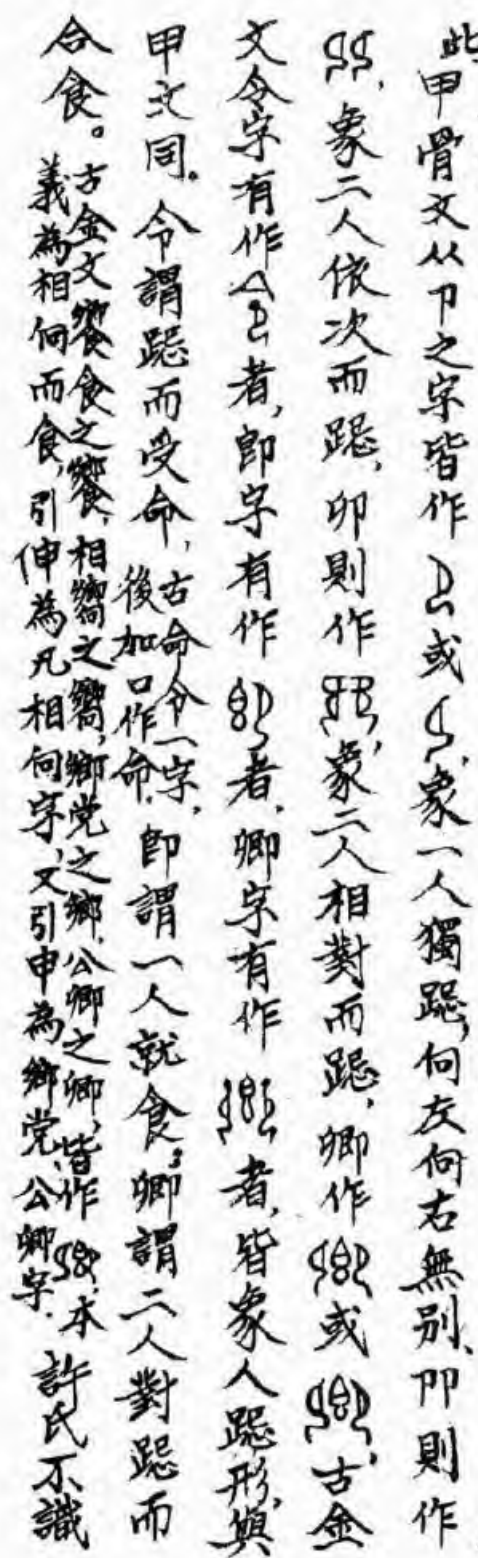 此甲骨文从卩之字皆作或象一人獨跽,向左向右無别,卪卪則作
象二人依次而跽,卯則作象二人相對而跽,卿作或古金
文令字有作者,即字有作者,卿字有作者,皆象人跽形,與
甲文同。令謂跽而受命,古命令一字,後加口作命,即謂一人就食,卿謂二人對跽而
合食。古金文饗食之饗,相嚮之嚮,鄉党之鄉,公卿之卿,皆作本義為相向而食,引伸為凡相向字,又引申為鄉党、公卿字.許氏不識